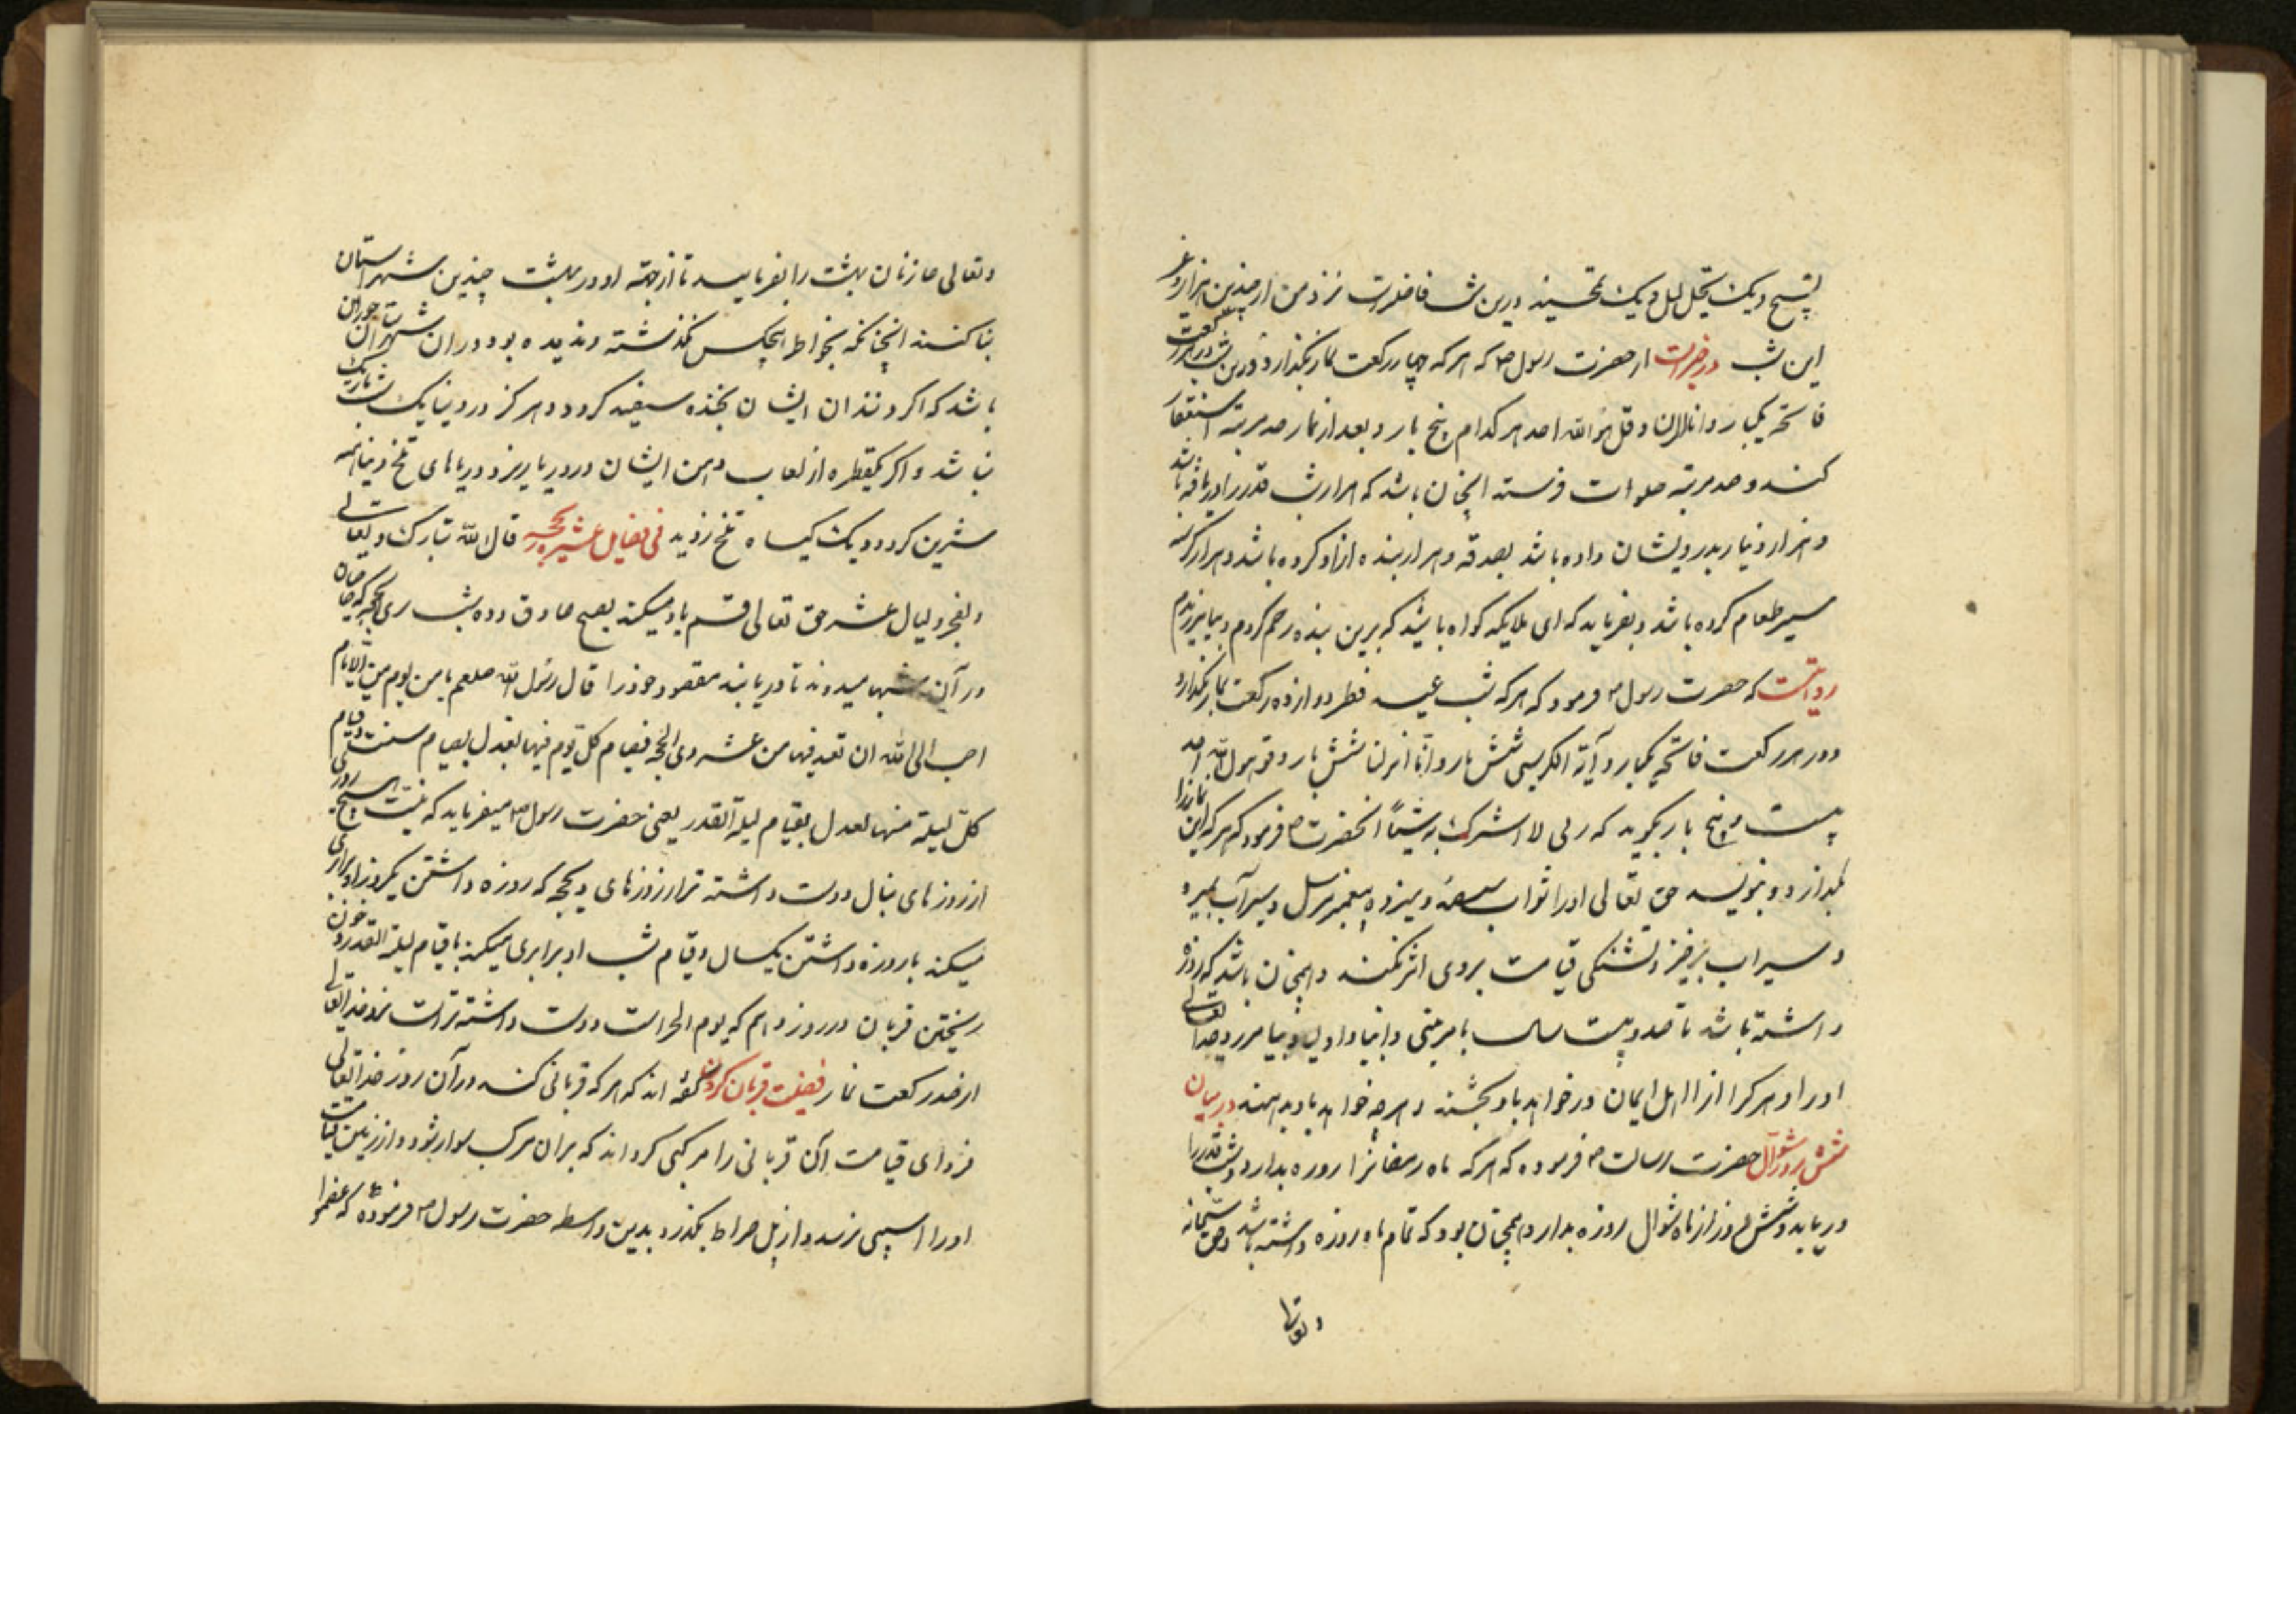 این شب در خبرست از حضرت رسول که هر که چهار رکعت نماز بگذارد درین شب در هر رکعت
فاتحه یکبار و انا انزلنا و قل هو الله احد هر کدام پنج بار و بعد از نماز صد مرتبه استغفار
کند و صد مرتبه صلوات فرستد انچنان باشد که هزار شب قدر را دریافته باشد
و هزار دینار بدرویشان داده باشد بصدقه و هزار بنده ازاد کرده باشد و هزار کرسنه
سیر طعام کرده باشد و بفرماید که ای ملایکه کواه باشید که برین بنده رحم کردم و بیامرزیدم
روایتست که حضرت رسول فرمود که هر که شب عید فطر دوازده رکعت نماز بگذارد
و در هر رکعت فاتحه یکبار و آیة الکرسی شش بار و انا انزلنا شش بار و قل هو الله احد
بیست و پنج بار بگوید که ربی لا اشرک به شیئاً انحضرت فرمود که هر که این نماز را
بگذارد و بنویسد حق تعالی او را ثواب سیصد و سیزده پیغمبر مرسل و سیرآب بمیرد
و سیراب برخیزد و تشنکی قیامت بر وی اثر نکند و همچنان باشد که روزه
داشته باشد تا صد و بیست سال با مرتبه انبیا و اولیا و بیامرزد خدا تعالی
او را و هر کرا از اهل ایمان در خواهد باو بخشند و هر چه خواهد باو بدهند در بیان
شش روز شوال حضرت رسالت فرموده که هر که ماه رمضانرا روزه بدارد و شب قدر را
دریابد و شش روز از ماه شوال روزه بدارد همچنان بود که تمام ماه روزه داشته باشد و حق سبحانه
و تعالی
و تعالی خازنان بهشت را بفرماید تا از جهة او در بهشت چندین شهرستان
بنا کنند انچنانکه بخواطر هیچکس نکذشته و ندیده بود و در ان شهرستان حوران
باشد که اکر دندان ایشان بخنده سفید کردد هرکز در دنیا یک شب تاریک
نباشد و اکر یکقطره از لعاب دهن ایشان در دریا ریزد دریاهای تلخ دنیا همه
شیرین کردد و یک کیاه تلخ نروید فی فضایل عشر ذیحجه قال الله تبارک و تعالی
والفجر و لیال عشر حق تعالی قسم یاد میکند بصبح صادق و ده شب ذی الحجه که خاصان
در آن شبها میدوند تا دریابند مقصود خود را قال رسول الله صلعم ما من یوم من الایام
احب الی الله ان تعبد فیها من عشر ذی الحجه فصیام کل یوم فیها یعدل بصیام سنت و قیام
کل لیلة منها یعدل بقیام لیلة القدر یعنی حضرت رسول میفرماید که نیست هیچ روزی
از روزهای سال دوست داشته تر از روزهای ذیحجه که روزه داشتن یکروز او برابری
میکند با روزه داشتن یکسال و قیام شب او برابری میکند با قیام لیلة القدر و خون
ریختن قربان در روز دهم که یوم النحر است دوست داشته ترست نزد خدایتعالی
از صد رکعت نماز فضیلت قربان کردن کفته اند که هر که قربانی کند در آن روز خدایتعالی
فردای قیامت آن قربانی را مرکبی کرداند که بران مرکب سوار شود و از زمین قیامت
او را اسیبی نرسد و از پل صراط بکذرد بدین واسطه حضرت رسول فرموده که عظموا